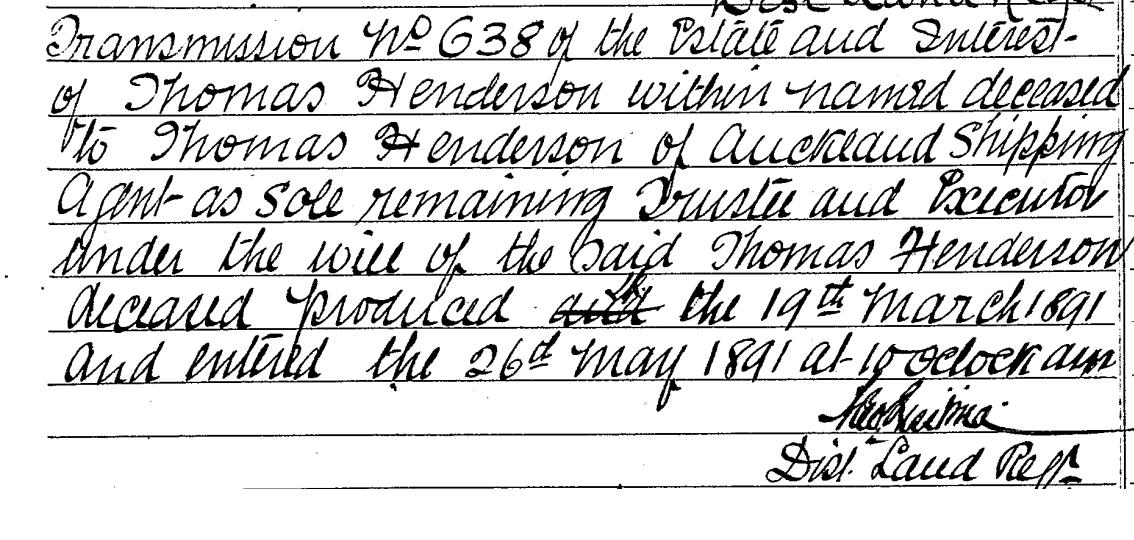 Dist Land Regr
Transmission No 638 of the Estate and Interest
of Thomas Henderson within named deceased
to Thomas Henderson of Auckland Shipping
Agent as Sole remaining Trustee and Executor
under the will of the said Thomas Henderson
deceased produced the 19th March 1891
and entered the 26d May 1891 at 10 oclock am
Dist. Land Regr